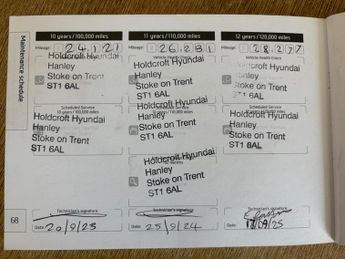 Maintenance schedule
10 years / 100,000 miles
Mileage: 24121
Holdcroft Hyundai
Hanley
Stoke on Trent
ST1 6AL
Scheduled Service
10 years / 100,000 miles
Holdcroft Hyundai
Hanley
Stoke on Trent
ST1 6AL
Technician's signature
Date: 20/9/23
11 years / 110,000 miles
Mileage: 26281
Vehicle Health Check
Holdcroft Hyundai
Hanley
Stoke on Trent
ST1 6AL
Holdcroft Hyundai
Hanley
Stoke on Trent
ST1 6AL
Holdcroft Hyundai
Hanley
Stoke on Trent
ST1 6AL
Technician's signature
Date: 25/9/24
12 years / 120,000 miles
Mileage: 28277
Vehicle Health Check
Holdcroft Hyundai
Hanley
Stoke on Trent
ST1 6AL
Holdcroft Hyundai
Hanley
Stoke on Trent
ST1 6AL
Technician's signature
Date:
68